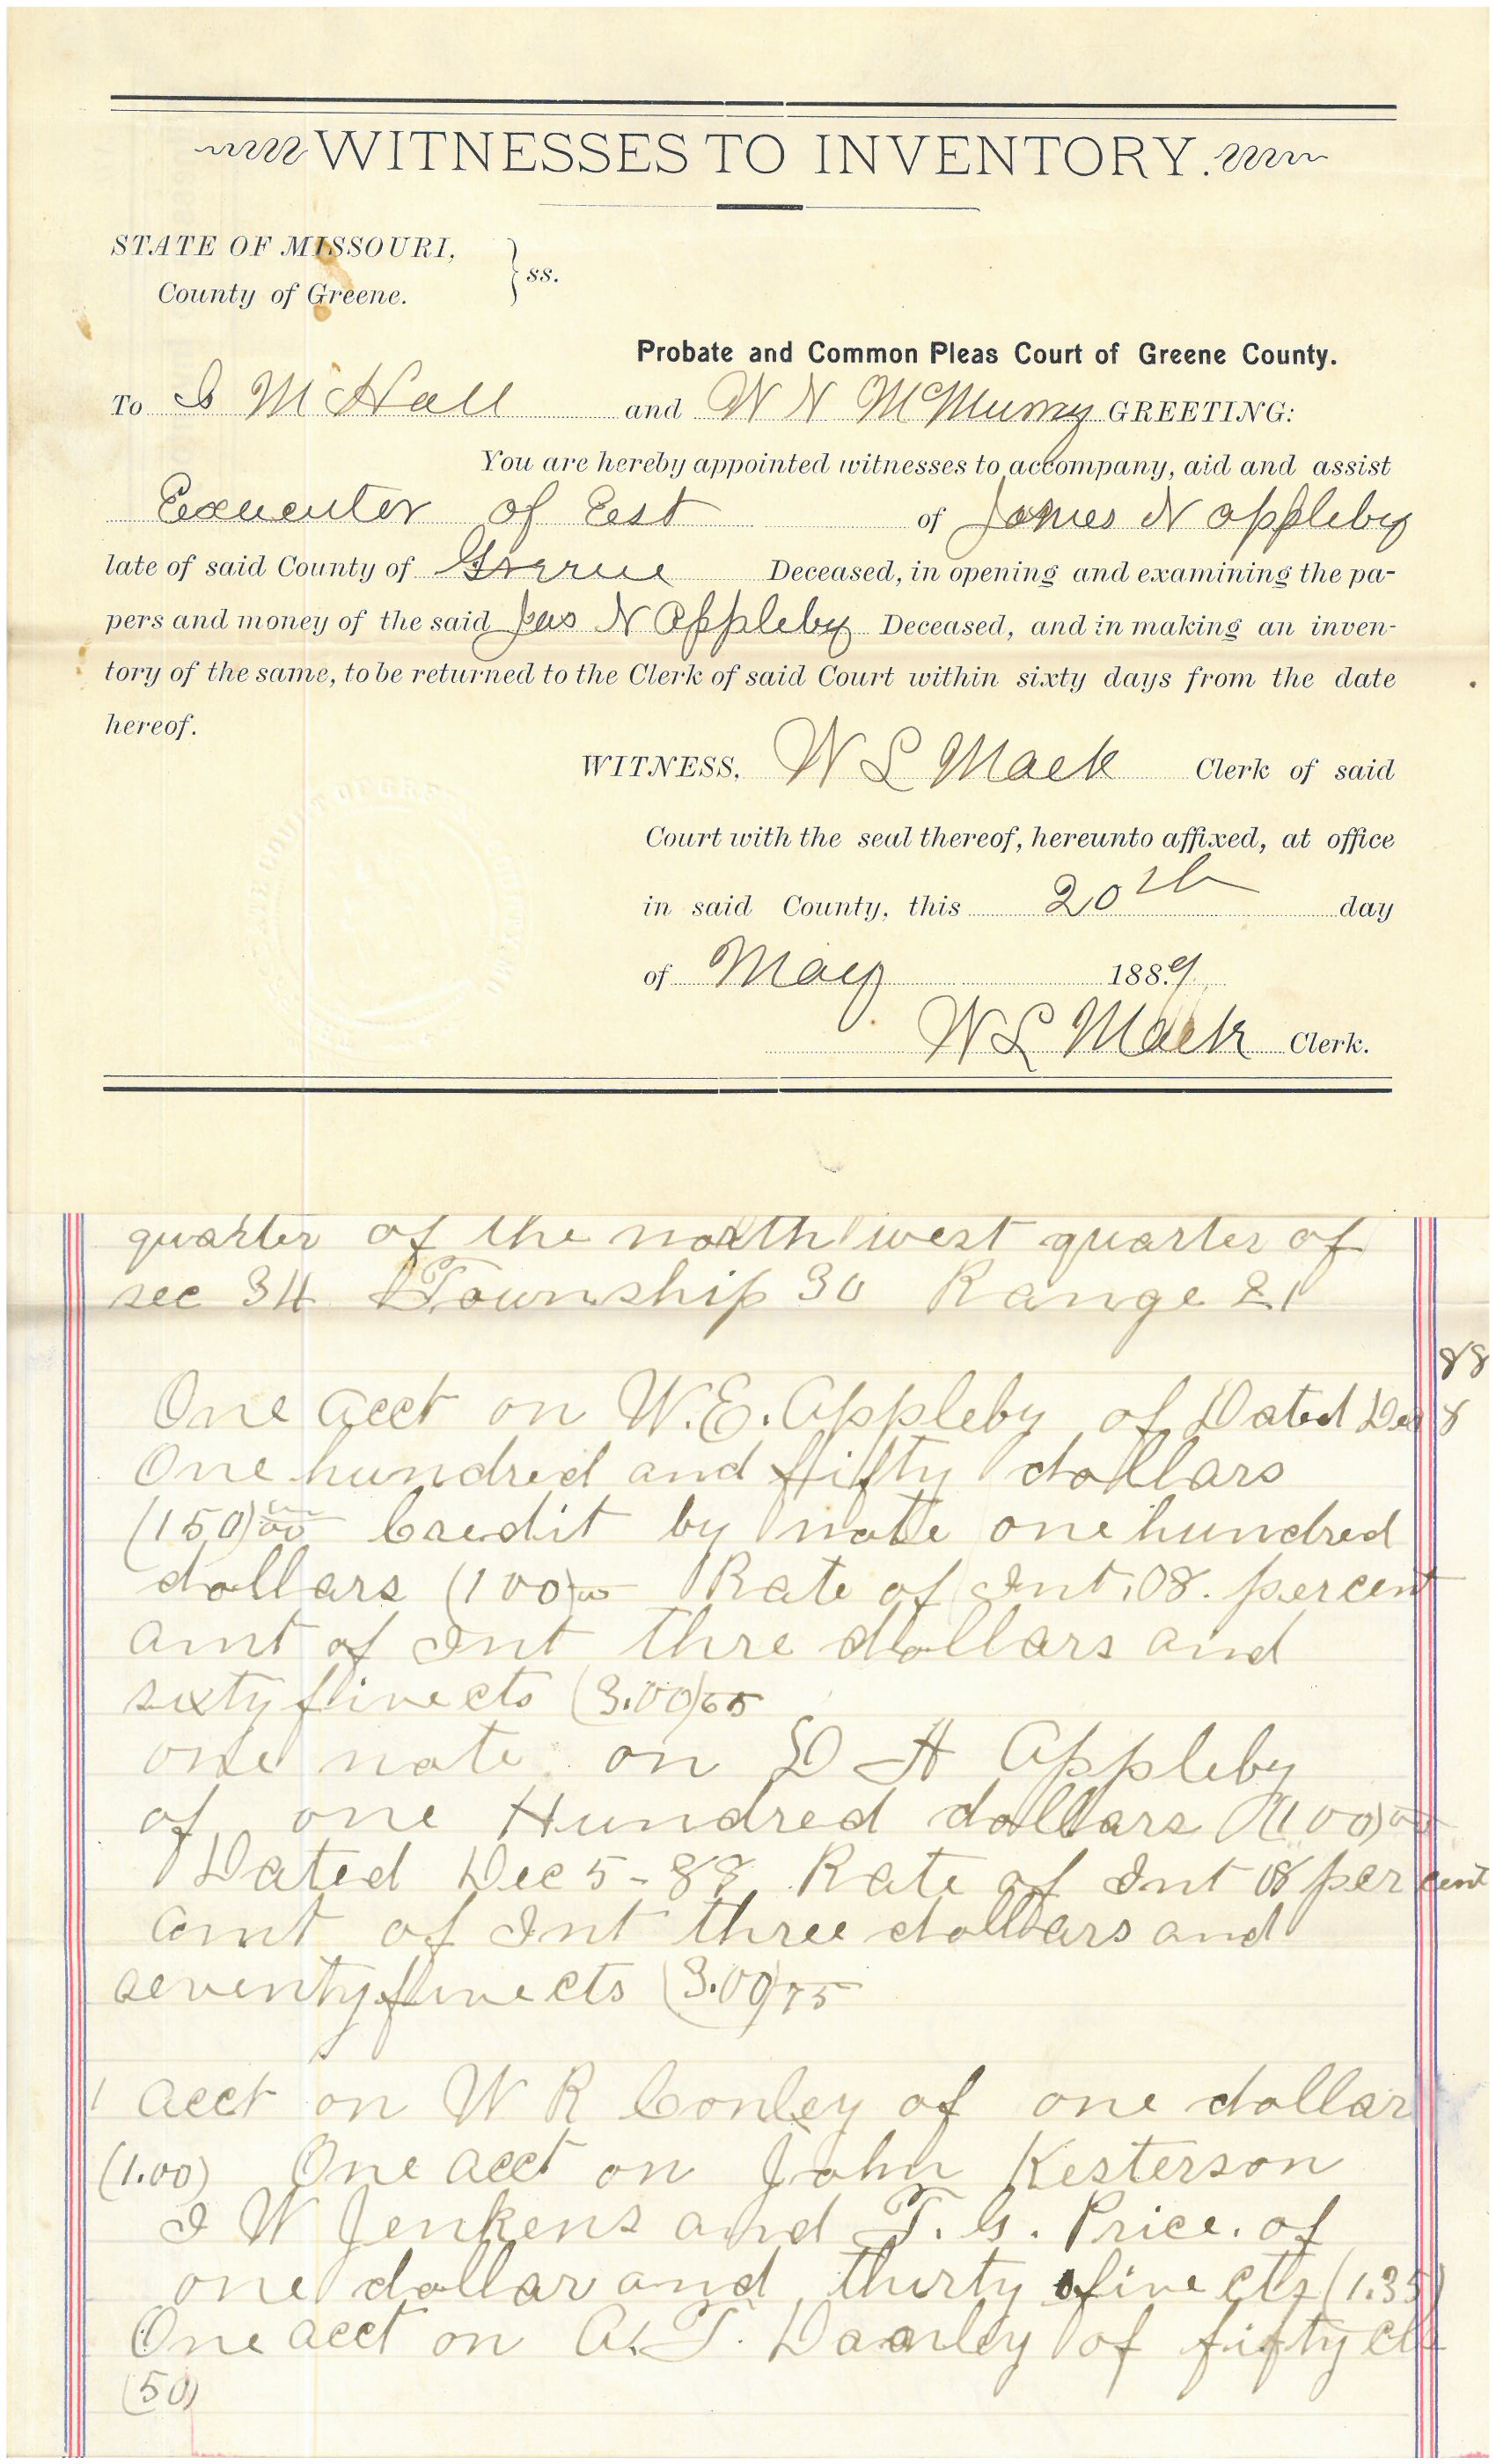 WITNESSES TO INVENTORY.
STATE OF MISSOURI,
County of Greene. } ss.
Probate and Common Pleas Court of Greene County.
To M Hall and W N McMurry GREETING:
You are hereby appointed witnesses to accompany, aid and assist
Executor of Est of James N Appleby
late of said County of Greene Deceased, in opening and examining the pa-
pers and money of the said Jas N Appleby Deceased, and in making an inven-
tory of the same, to be returned to the Clerk of said Court within sixty days from the date
hereof.
WITNESS, W L Mack Clerk of said
Court with the seal thereof, hereunto affixed, at office
in said County, this 20th day
of May 1889.
W L Mack Clerk.
quarter of the north west quarter of
sec 34 Township 30 Range 21
88
One acct on W.E. Appleby of Dated Dec 8
One hundred and fifty dollars
(150)00 Credit by note one hundred
dollars (100)00 Rate of Int .08. percent
amt of Int thre dollars and
sixty five cts (3.00)65
one note on D A Appleby
of one Hundred dollars (100)00
Dated Dec 5-88 Rate of Int 08 per cent
amt of Int three dollars and
seventy five cts (3.00)75
1 acct on W R Conley of one dollar
(1.00) One acct on John Kesterson
I W Jenkens and T. G. Price. of
one dollar and thirty five cts (1.35)
One acct on A. T. of fifty cts
(50)